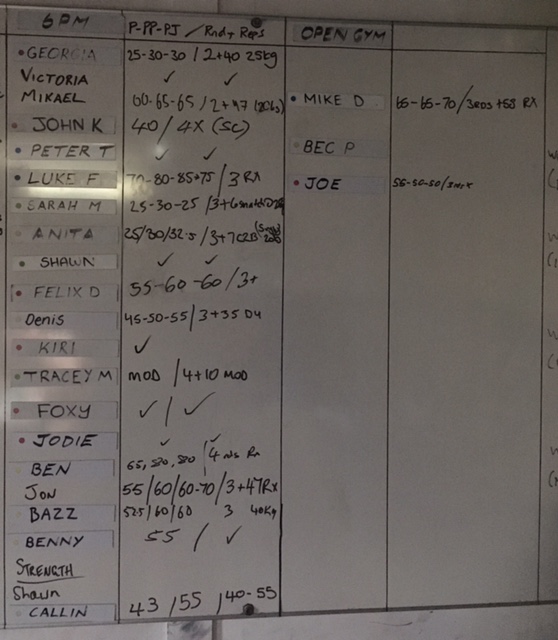 6PM P-PP-PJ / Rnd+ Reps OPEN GYM
GEORGIA 25-30-30 / 2+40 25kg
VICTORIA ✓ ✓
MIKAEL 60-65-65 / 2+47
MIKE D 65-65-70 / 3RDS +58 RX
JOHN K 40 / 4X (SC)
PETER T ✓ ✓
BEC P
LUKE F 70-80-85+75 / 3 RX
JOE 55-50-50 /
SARAH M 25-30-25 / 3+6
ANITA 25/30/32.5 / 3+7
SHAWN ✓ ✓
FELIX D 55-60-60 / 3+
Denis 45-50-55 / 3+35 DU
KIRI ✓
TRACEY M MOD / 4+10 MOD
FOXY ✓ / ✓
JODIE ✓ ✓
BEN 65, 80, 80 / 4 rds Rx
JON 55/60/60-70 / 3+47RX
BAZZ 52.5/60/60 3 40Kg
BENNY 55 / ✓
STRENGTH
Shawn
CALLIN 43 / 55 / 40-55